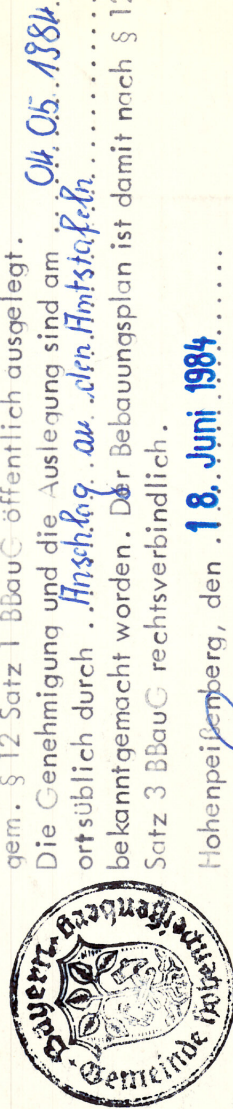 gem. § 12 Satz 1 BBauG öffentlich ausgelegt.
Die Genehmigung und die Auslegung sind am ..04.05.1984.
ortsüblich durch .Anschlag an den Amtstafeln..........
bekanntgemacht worden. Der Bebauungsplan ist damit nach § 12
Satz 3 BBauG rechtsverbindlich.
Hohenpeißenberg, den .18. Juni 1984.......
Bayern
Gemeinde Hohenpeißenberg